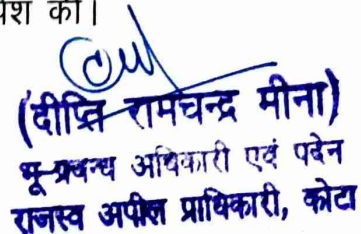 पेश की।
(दीप्ति रामचन्द्र मीना)
भू-प्रबन्ध अधिकारी एवं पदेन
राजस्व अपील प्राधिकारी, कोटा